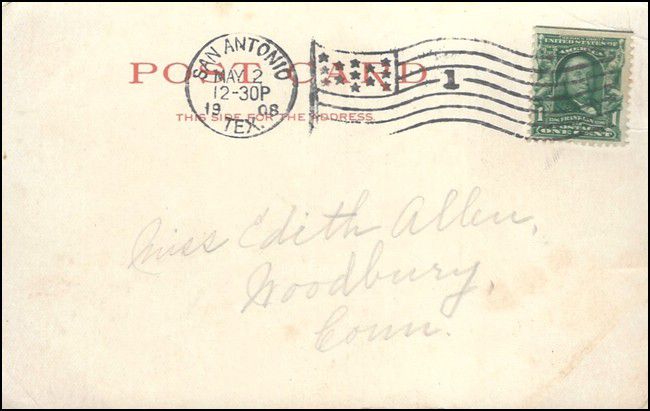 POST CARD
THIS SIDE FOR THE ADDRESS
SAN ANTONIO
MAY 2
12-30P
19 08
TEX.
1
UNITED STATES OF
AMERICA
1 FRANKLIN 1
POSTAGE
ONE CENT
Miss Edith Allen,
Woodbury,
Conn.